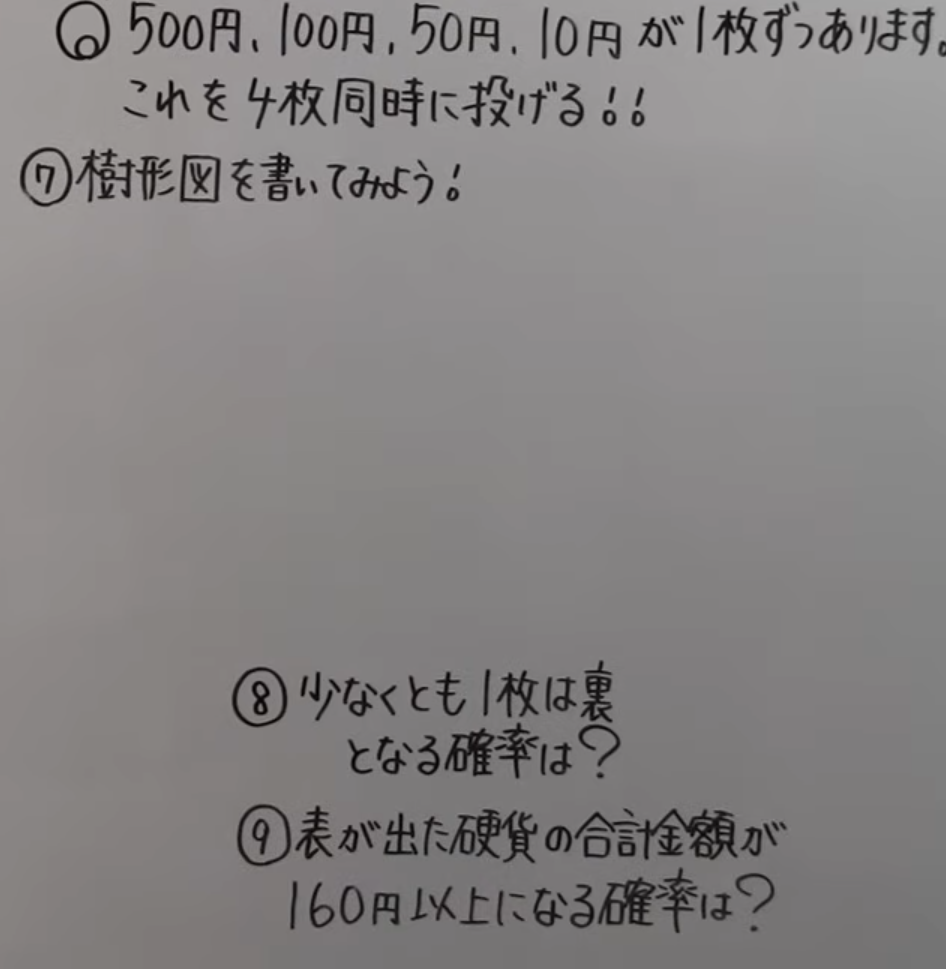 ◎500円、100円、50円、10円が1枚ずつあります。
これを4枚同時に投げる!!
⑦樹形図を書いてみよう!
⑧少なくとも1枚は裏
となる確率は?
⑨表が出た硬貨の合計金額が
160円以上になる確率は?